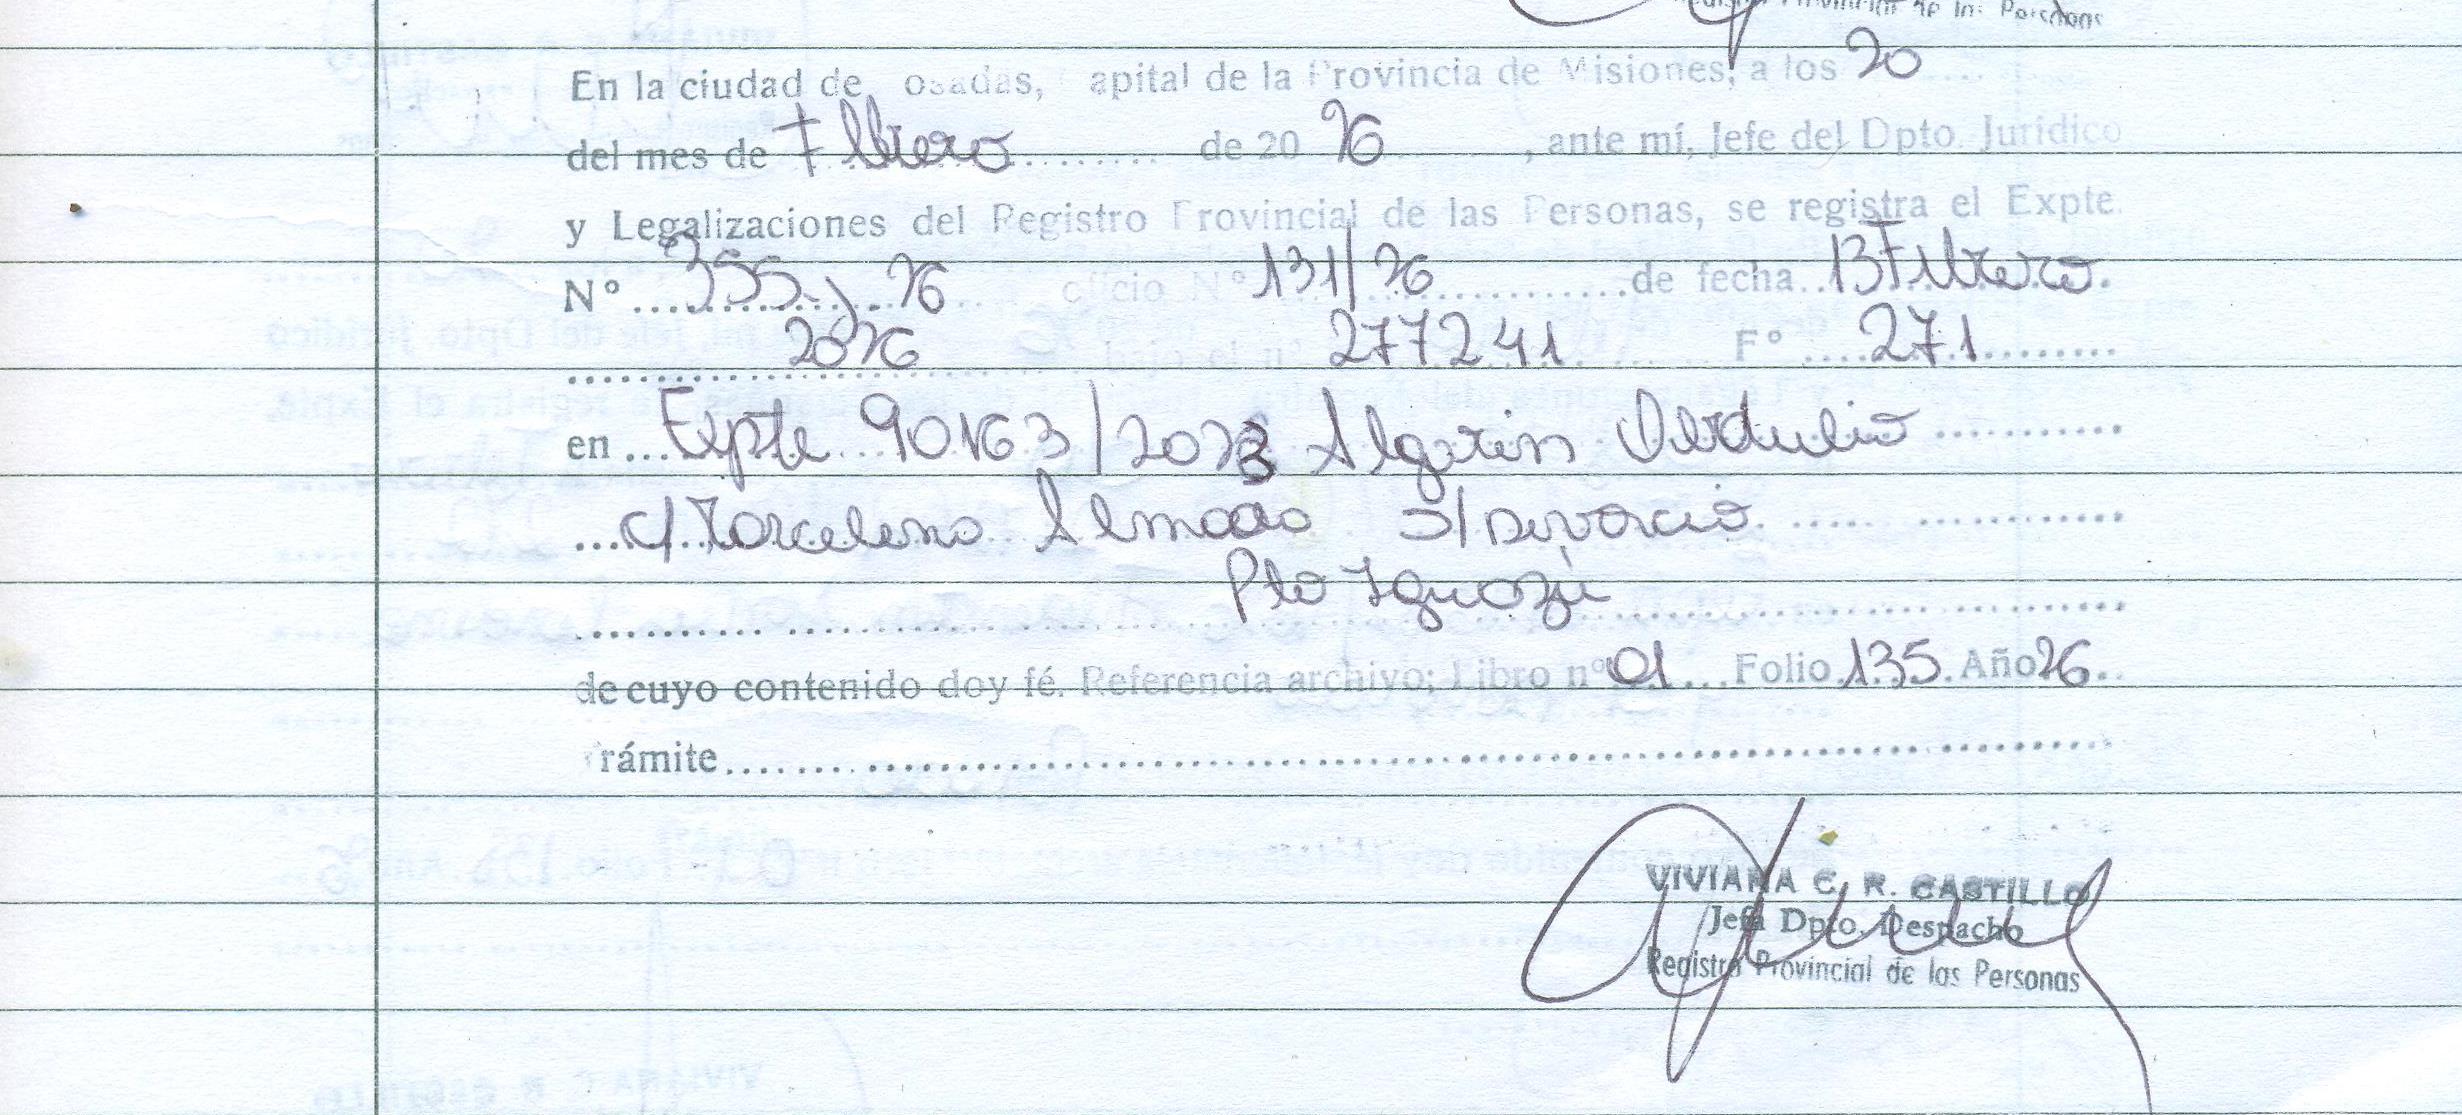 Registro Provincial de las Personas
En la ciudad de osadas, apital de la Provincia de Misiones, a los 20
del mes de Febrero de 20 26, ante mí, Jefe del Dpto. Jurídico
y Legalizaciones del Registro Provincial de las Personas, se registra el Expte.
Nº 355-J-26 oficio Nº 131/26 de fecha 13 Febrero
2026 bajo el nº 277241 Fº 271
en Expte 90163/2023 Algarin Obdulio
c/ Marcelena S/Divorcio
Pto Iguazú
de cuyo contenido doy fé. Referencia archivo; Libro nº 01 Folio 135 Año 26
rámite
VIVIANA C. R. CASTILLO
Jefa Dpto. Despacho
Registro Provincial de las Personas